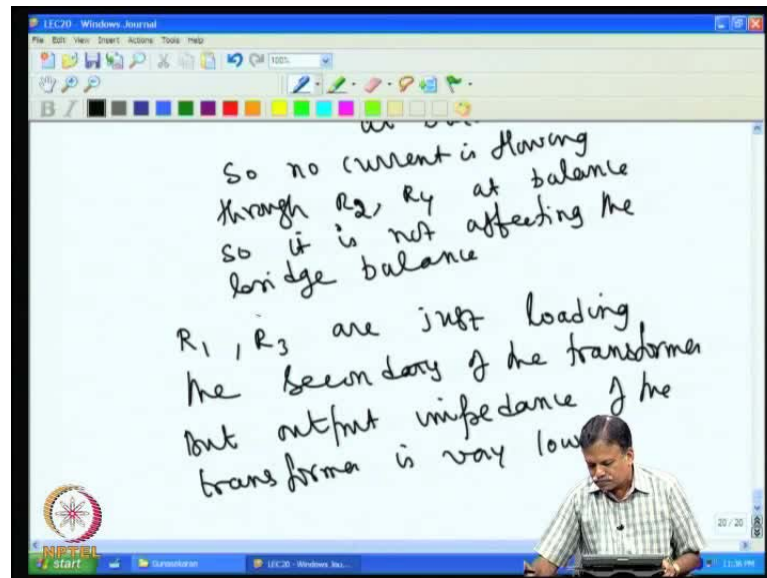 LEC20 - Windows Journal
File Edit View Insert Actions Tools Help
100%
B I
So no current is flowing
through R2, R4 at balance
so it is not affecting the
bridge balance
R1, R3 are just loading
the secondary of the transformer
but output impedance of the
transformer is very low
20 / 20
NPTEL
start Gunasekaran LEC20 - Windows Jou... 11:36 PM